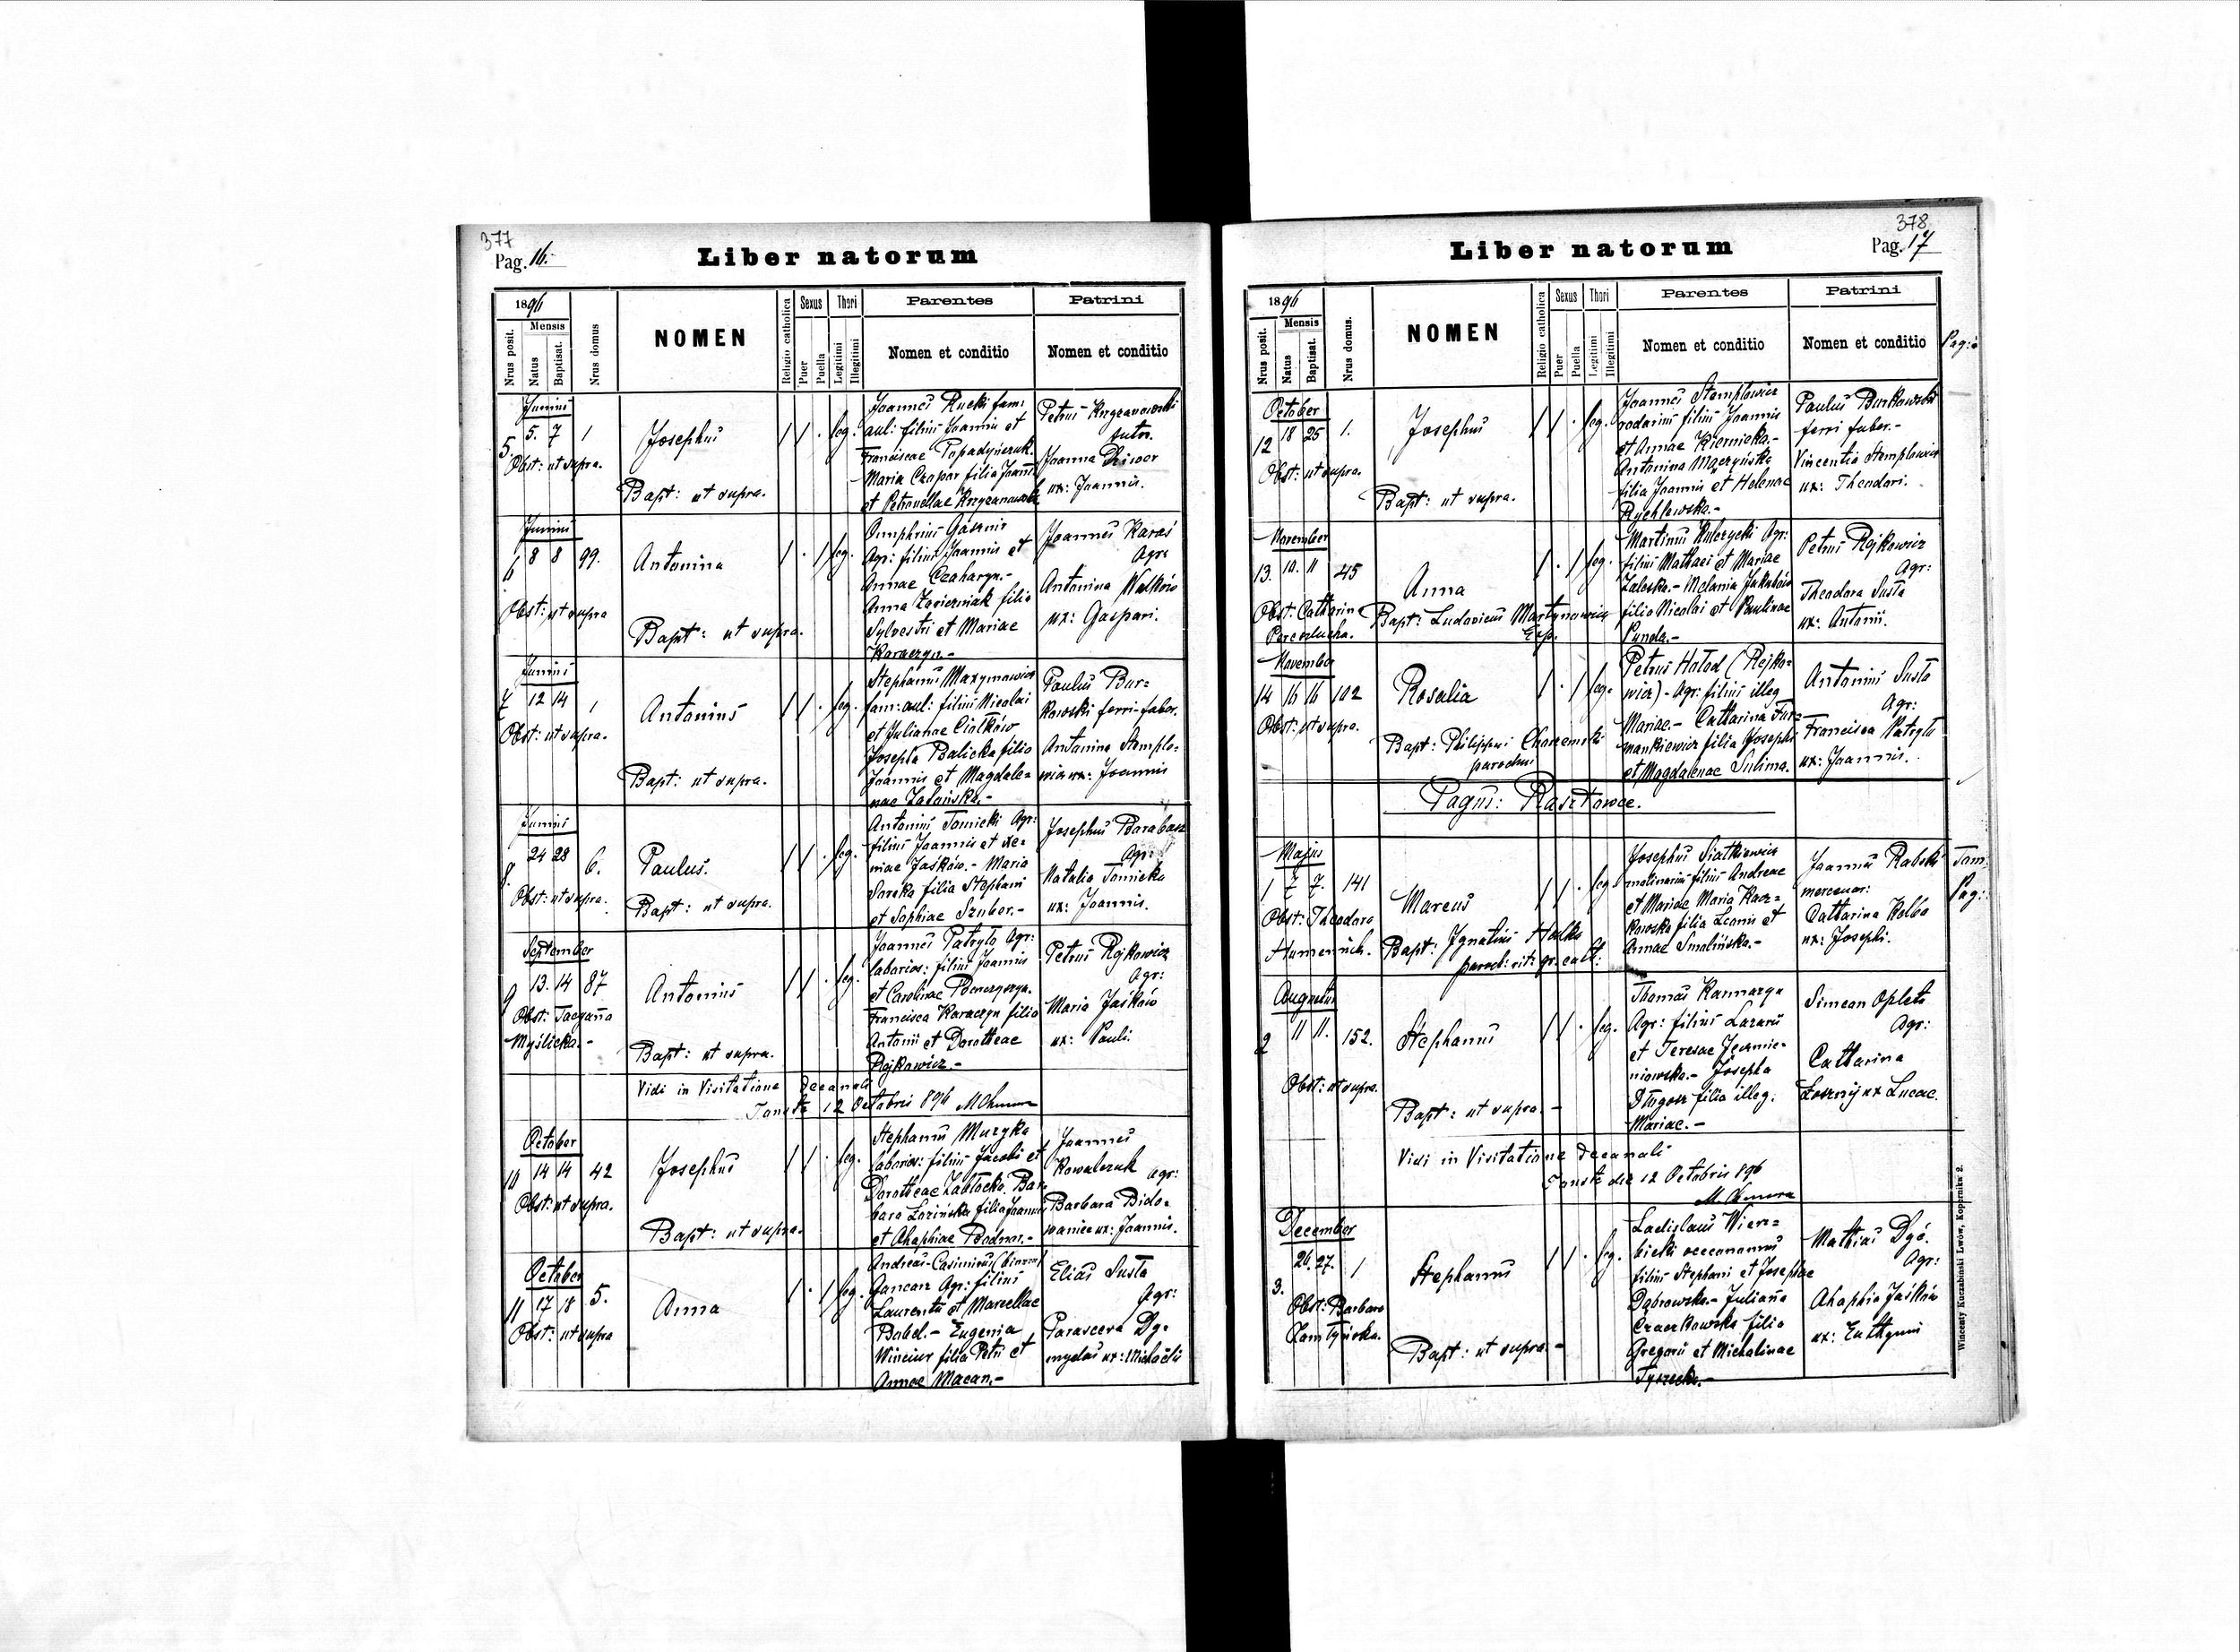 377
Pag. 16.
Liber natorum
1896
Mensis
Nrus posit.
Natus
Baptisat.
Nrus domus
NOMEN
Religio catholica
Sexus
Puer
Puella
Thori
Legitimi
Illegitimi
Parentes
Nomen et conditio
Patrini
Nomen et conditio
Junius
5. 5. 7 1
Obst: ut supra.
Josephus
Bapt: ut supra.
leg.
Joannes Rucki fam:
aul: filius Joannis et
Franciscae Popadyńczuk.
Maria Czapar filia Joann
et Petronellae Krzyzanowska
Petrus Krzyzanowski
sutor.
Joanna Dziwor
ux: Joannis.
Junius
6 8 8 99.
Obst: ut supra
Antonina
Bapt: ut supra.
leg.
Omphrius
Agr: filius Joannis et
Annae Czaharyn.-
Anna filia
Sylvestri et Mariae
Karaczyn.-
Joannes Karaś
Agr:
Antonina Walków
ux: Gaspari.
Junius
7 12 14 1
Obst: ut supra.
Antonius
Bapt: ut supra.
leg.
Stephanus Maxymowicz
fam: aul: filius Nicolai
et Julianae Ciołków
Josepha Balicka filia
Joannis et Magdale=
nae Zalańska.-
Paulus Bur=
kowski ferri-faber.
Antonina Stemplo=
wicz ux: Joannis
Junius
8. 24 28 6.
Obst: ut supra.
Paulus.
Bapt: ut supra.
leg.
Antonius Tomicki Agr:
filius Joannis et Xe=
niae Jaśków.- Maria
Soroka filia Stephani
et Sophiae Szuber.-
Josephus Barabasz
Agr:
Natalia Tomicka
ux: Joannis.
September
9 13. 14 87
Obst: Tacyanna
Myślicka.-
Antonius
Bapt: ut supra.
leg.
Joannes Patryło Agr:
laborios: filius Joannis
et Carolinae
Francisca Karaczyn filia
Antonii et Dorotheae
Rojkowicz.-
Petrus Rojkowicz
Agr:
Maria Jaśków
ux: Pauli.
Vidi in Visitatione Decanali
12 Octobris 896
October
10 14 14 42
Obst: ut supra.
Josephus
Bapt: ut supra.
leg.
Stephanus Muzyka
laborios: filius Jacobi et
Dorotheae Zabłocka. Bar=
bara Łozińska filia Joannis
et Ahaphiae Bodnar.-
Joannes
Kowalczuk Agr:
Barbara Bido=
waniec ux: Joannis.
October
11 17 18 5.
Obst: ut supra
Anna
leg.
Andreas-Casimirus (binom)
Gancarz Agr: filius
Laurentii et Marcellae
Babel.- Eugenia
Winciur filia Petri et
Annae Macan.-
Elias Susta
Agr:
Parasceva Dy=
mydas ux: Michaëlis
378
Pag. 17
Liber natorum
1896
Mensis
Nrus posit.
Natus
Baptisat.
Nrus domus.
NOMEN
Religio catholica
Sexus
Puer
Puella
Thori
Legitimi
Illegitimi
Parentes
Nomen et conditio
Patrini
Nomen et conditio
Pag:
October
12 18 25 1.
Obst: ut supra.
Josephus
Bapt: ut supra.
leg.
Joannes Stemplowicz
rodarius filius Joannis
et Annae Kiernicka.-
Antonina Mączyńska
filia Joannis et Helenae
Rychlewska.-
Paulus Burkowski
ferri faber.-
Vincentia Stemplowicz
ux: Theodori.
November
13. 10. 11 45
Obst: Catharina
Anna
Bapt: Ludovicus Martynowicz
Exp.
leg.
Martinus Kulczycki Agr:
filius Mathaei et Mariae
Załoska.- Melania Jakubów
filia Nicolai et Paulinae
Punda.-
Petrus Rojkowicz
Agr:
Theodora Susta
ux: Antonii.
November
14 16 16 102
Obst: ut supra.
Rosalia
Bapt: Philippus
parochus
leg.
Petrus Hałod (Rojko=
wicz)- Agr: filius illeg
Mariae.- Catharina Fur=
mankiewicz filia Josephi
et Magdalenae Sulima.
Antonius Susta
Agr:
Francisca Patryło
ux: Joannis.
Pagus: Rasztowce.
Majus
1 7 7. 141
Obst: Theodora
Marcus
Bapt: Ignatius Halka
paroch: rit: gr. cath:
leg.
Josephus Siatkiewicz
molinarius filius Andreae
et Mariae Maria Kacz=
kowska filia Leonis et
Annae Smolińska.-
Joannes Rabski
mercenar:
Catharina Kolba
ux: Josephi.
Tom:
Pag:
Augustus
2 11 11. 152.
Obst: ut supra.
Stephanus
Bapt: ut supra.-
leg.
Thomas Kannarga
Agr: filius Lazarii
et Teresae
niowska.- Josepha
Długosz filia illeg.
Mariae.-
Simeon Opleta
Agr:
Catharina
ux Lucae.
Vidi in Visitatione Decanali
die 12 Octobris 896
December
3. 26. 27. 1
Obst: Barbara
Stephanus
Bapt: ut supra.-
leg.
Ladislaus Wierz=
bicki oeconomus
filius Stephani et Josephae
Dąbrowska.- Julianna
Czaczkowska filia
Gregorii et Michalinae
Mathias Dyó.
Agr:
Ahaphia Jaśków
ux: Euthymii
Wincenty Kuczabiński Lwów, Kopernika 2.